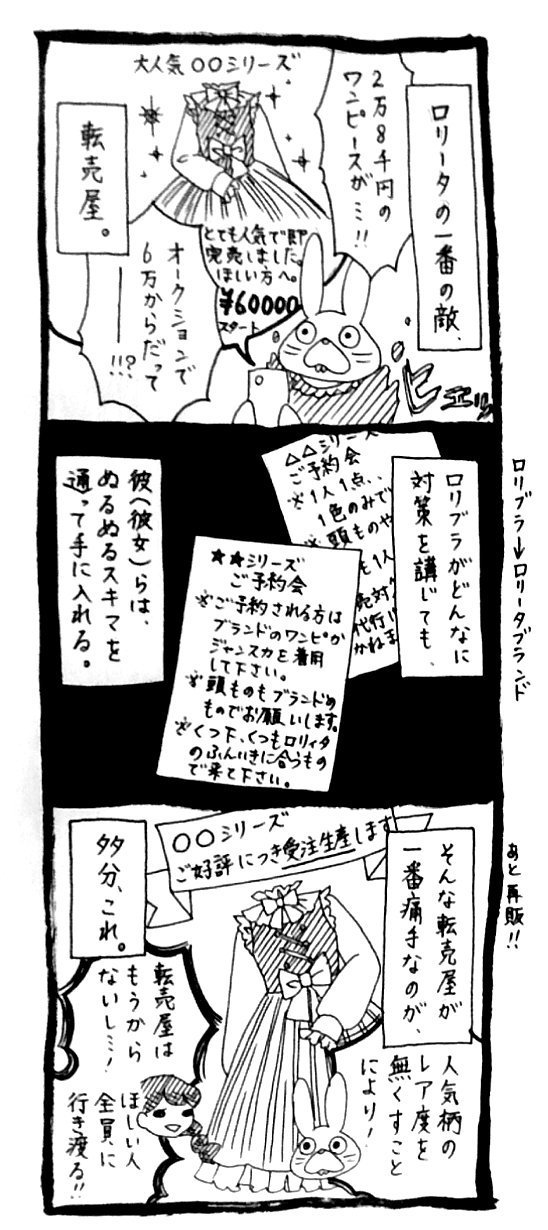 ロリータの一番の敵、
大人気〇〇シリーズ
2万8千円の
ワンピースがミ!!
転売屋。
とても人気で即
完売しました。
ほしい方へ。
¥60000
スタート
オークションで
6万からだって
――!!?
ヒェッ
ロリブラがどんなに
対策を講じても、
△△シリーズ
ご予約会
※1人1点、
1色のみで
※頭ものや
も1人
売対
代行
かねま
★★シリーズ
ご予約会
※ご予約される方は
ブランドのワンピか
ジャンスカを着用
して下さい。
※頭ものもブランドの
ものでお願いします。
※くつ下、くつもロリィタ
のふんいきに合うもの
で来て下さい。
彼(彼女)らは、
ぬるぬるスキマを
通って手に入れる。
ロリブラ→ロリータブランド
そんな転売屋が
一番痛手なのが、
〇〇シリーズ
ご好評につき受注生産します
多分、これ。
あと再販!!
人気柄の
レア度を
無くすこと
により!
転売屋は
もうから
ないしミ!
ほしい人
全員に
行き渡る!!